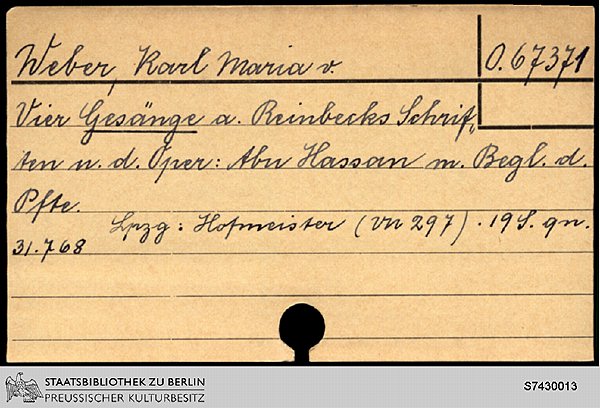 Weber, Karl Maria v.
O.67371
Vier Gesänge a. Reinbecks Schrif-
ten u. d. Oper: Abu Hassan m. Begl. d.
Pfte.
Lpzg: Hofmeister (VN 297). 19 S. qn.
31.768
STAATSBIBLIOTHEK ZU BERLIN
PREUSSISCHER KULTURBESITZ
S7430013